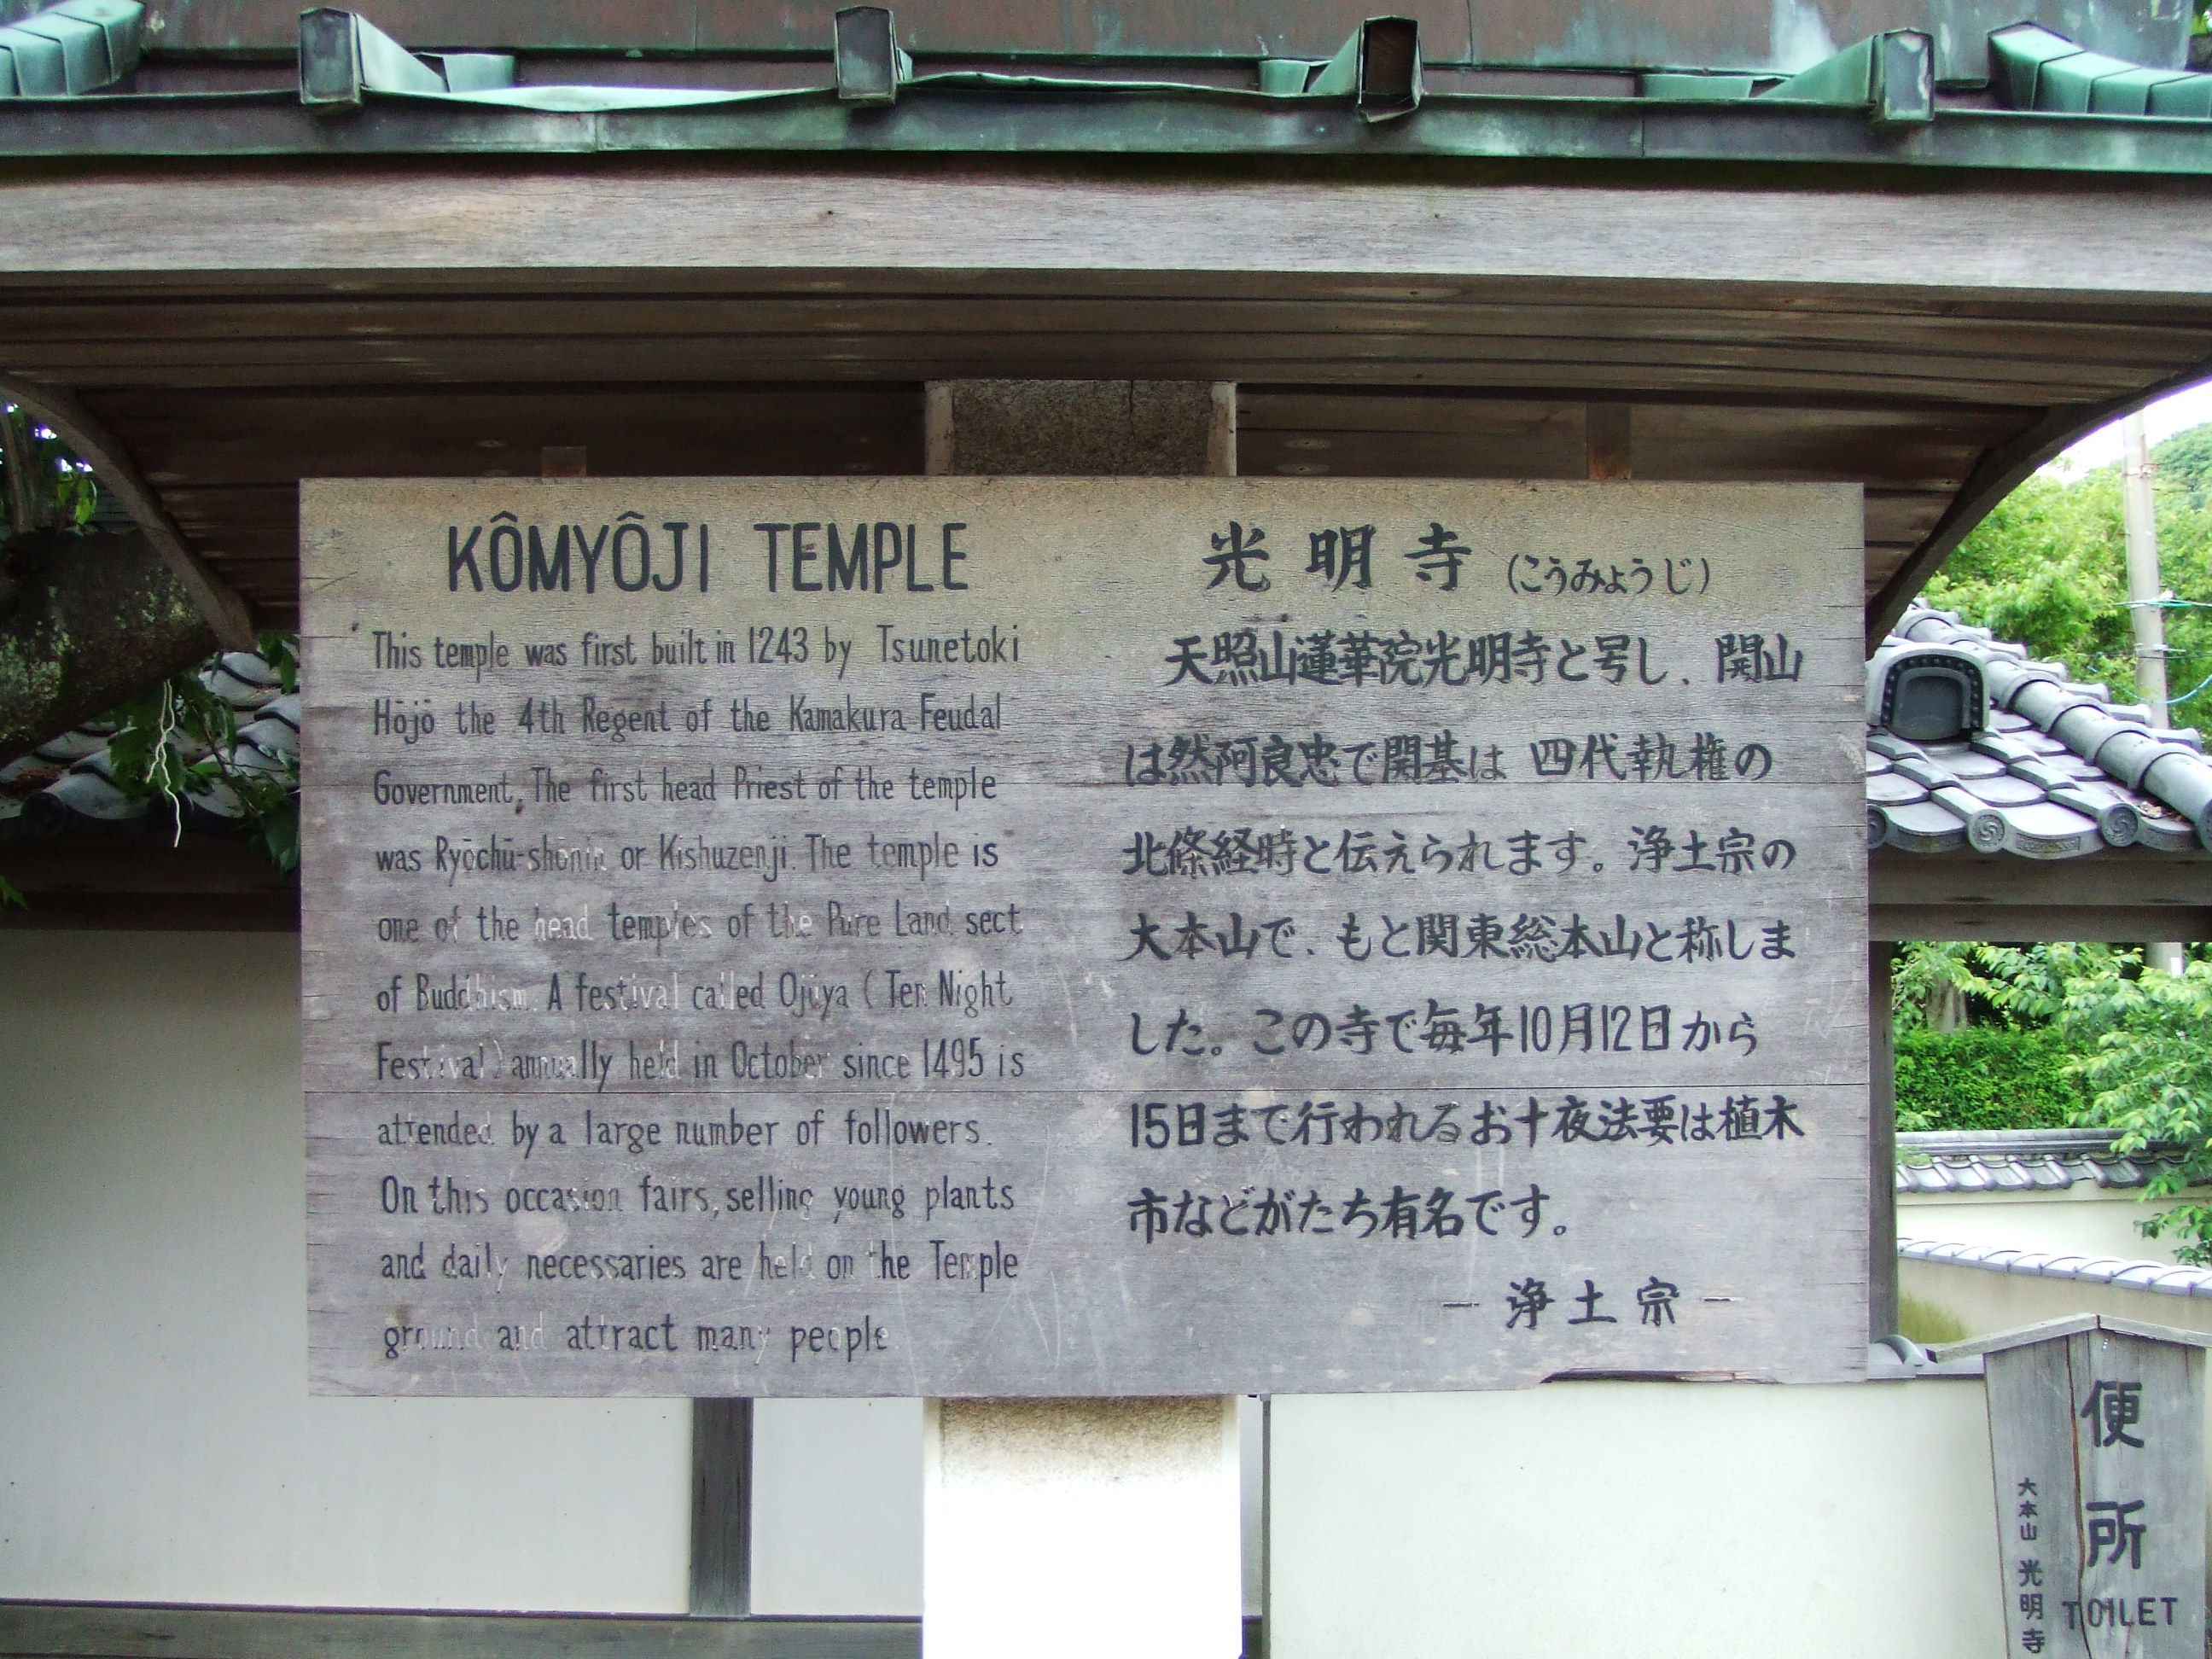 KÔMYÔJI TEMPLE
This temple was first built in 1243 by Tsunetoki
Hōjō the 4th Regent of the Kamakura Feudal
Government. The first head Priest of the temple
was Ryōchū-shōnin or Kishuzenji. The temple is
one of the head temples of the Pure Land sect
of Buddhism. A festival called Ojūya (Ten Night
Festival) annually held in October since 1495 is
attended by a large number of followers.
On this occasion fairs, selling young plants
and daily necessaries are held on the Temple
ground and attract many people
光明寺 (こうみょうじ)
天照山蓮華院光明寺と号し、開山
は然阿良忠で開基は 四代執権の
北條経時と伝えられます。浄土宗の
大本山で、もと関東総本山と称しま
した。この寺で毎年10月12日から
15日まで行われるお十夜法要は植木
市などがたち有名です。
− 浄土宗 −
便所
TOILET
大本山 光明寺